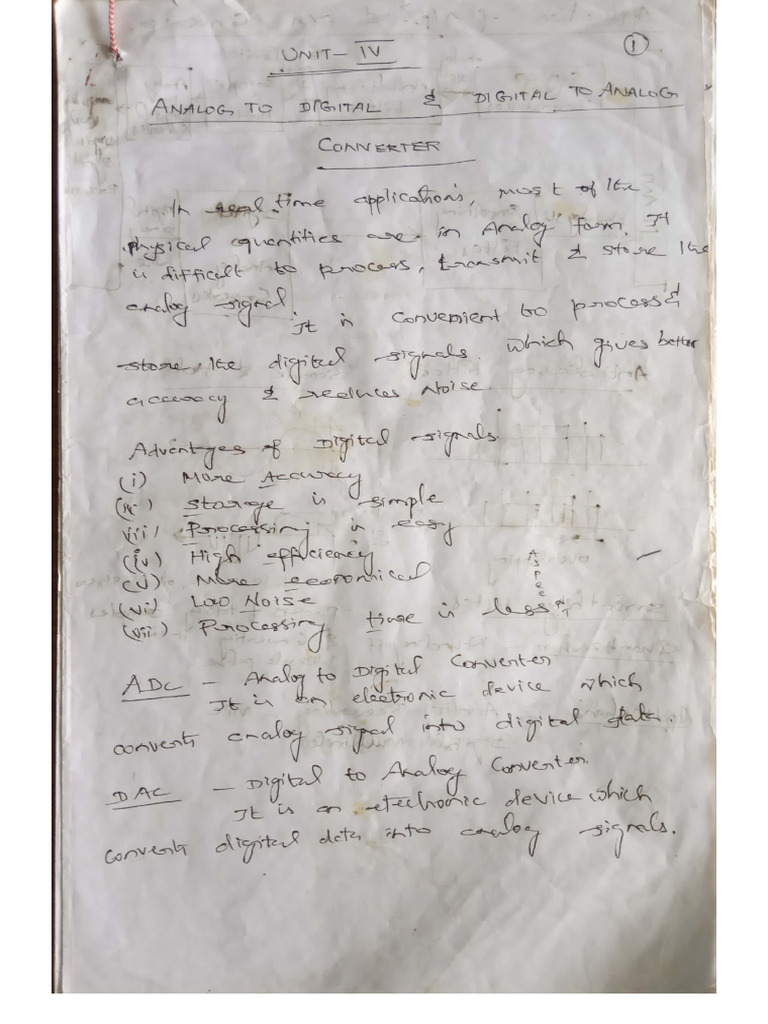 UNIT - IV
1
ANALOG TO DIGITAL & DIGITAL TO ANALOG
CONVERTER
In real time applications, most of the
physical quantities are in Analog form. It
is difficult to process, transmit & store the
analog signal. It is convenient to process &
store the digital signals. Which gives better
accuracy & reduces Noise.
Adventges of Digital signals.
(i) More Accuracy
(ii) Storage is simple
(iii) Processing is easy
(iv) High efficiency
(v) More economical
(vi) Low Noise
(vii) Processing time is less.
ADC - Analog to Digital Converter
It is an electronic device which
converts analog signal into digital data.
DAC - Digital to Analog Converter.
It is an electronic device which
converts digital data into analog signals.